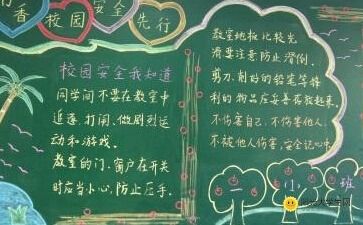 香 校园 安全 先行
校园安全我知道
同学间不要在教室中
追逐、打闹、做剧烈运
动和游戏。
教室的门、窗户在开关
时应当小心,防止压手。
教室地板比较光
滑要注意防止滑倒。
剪刀、削好的铅笔等锋
利的物品应妥善存放起来,
不伤害自己、不伤害他人、
不被他人伤害,安全记心中。
一 门 班